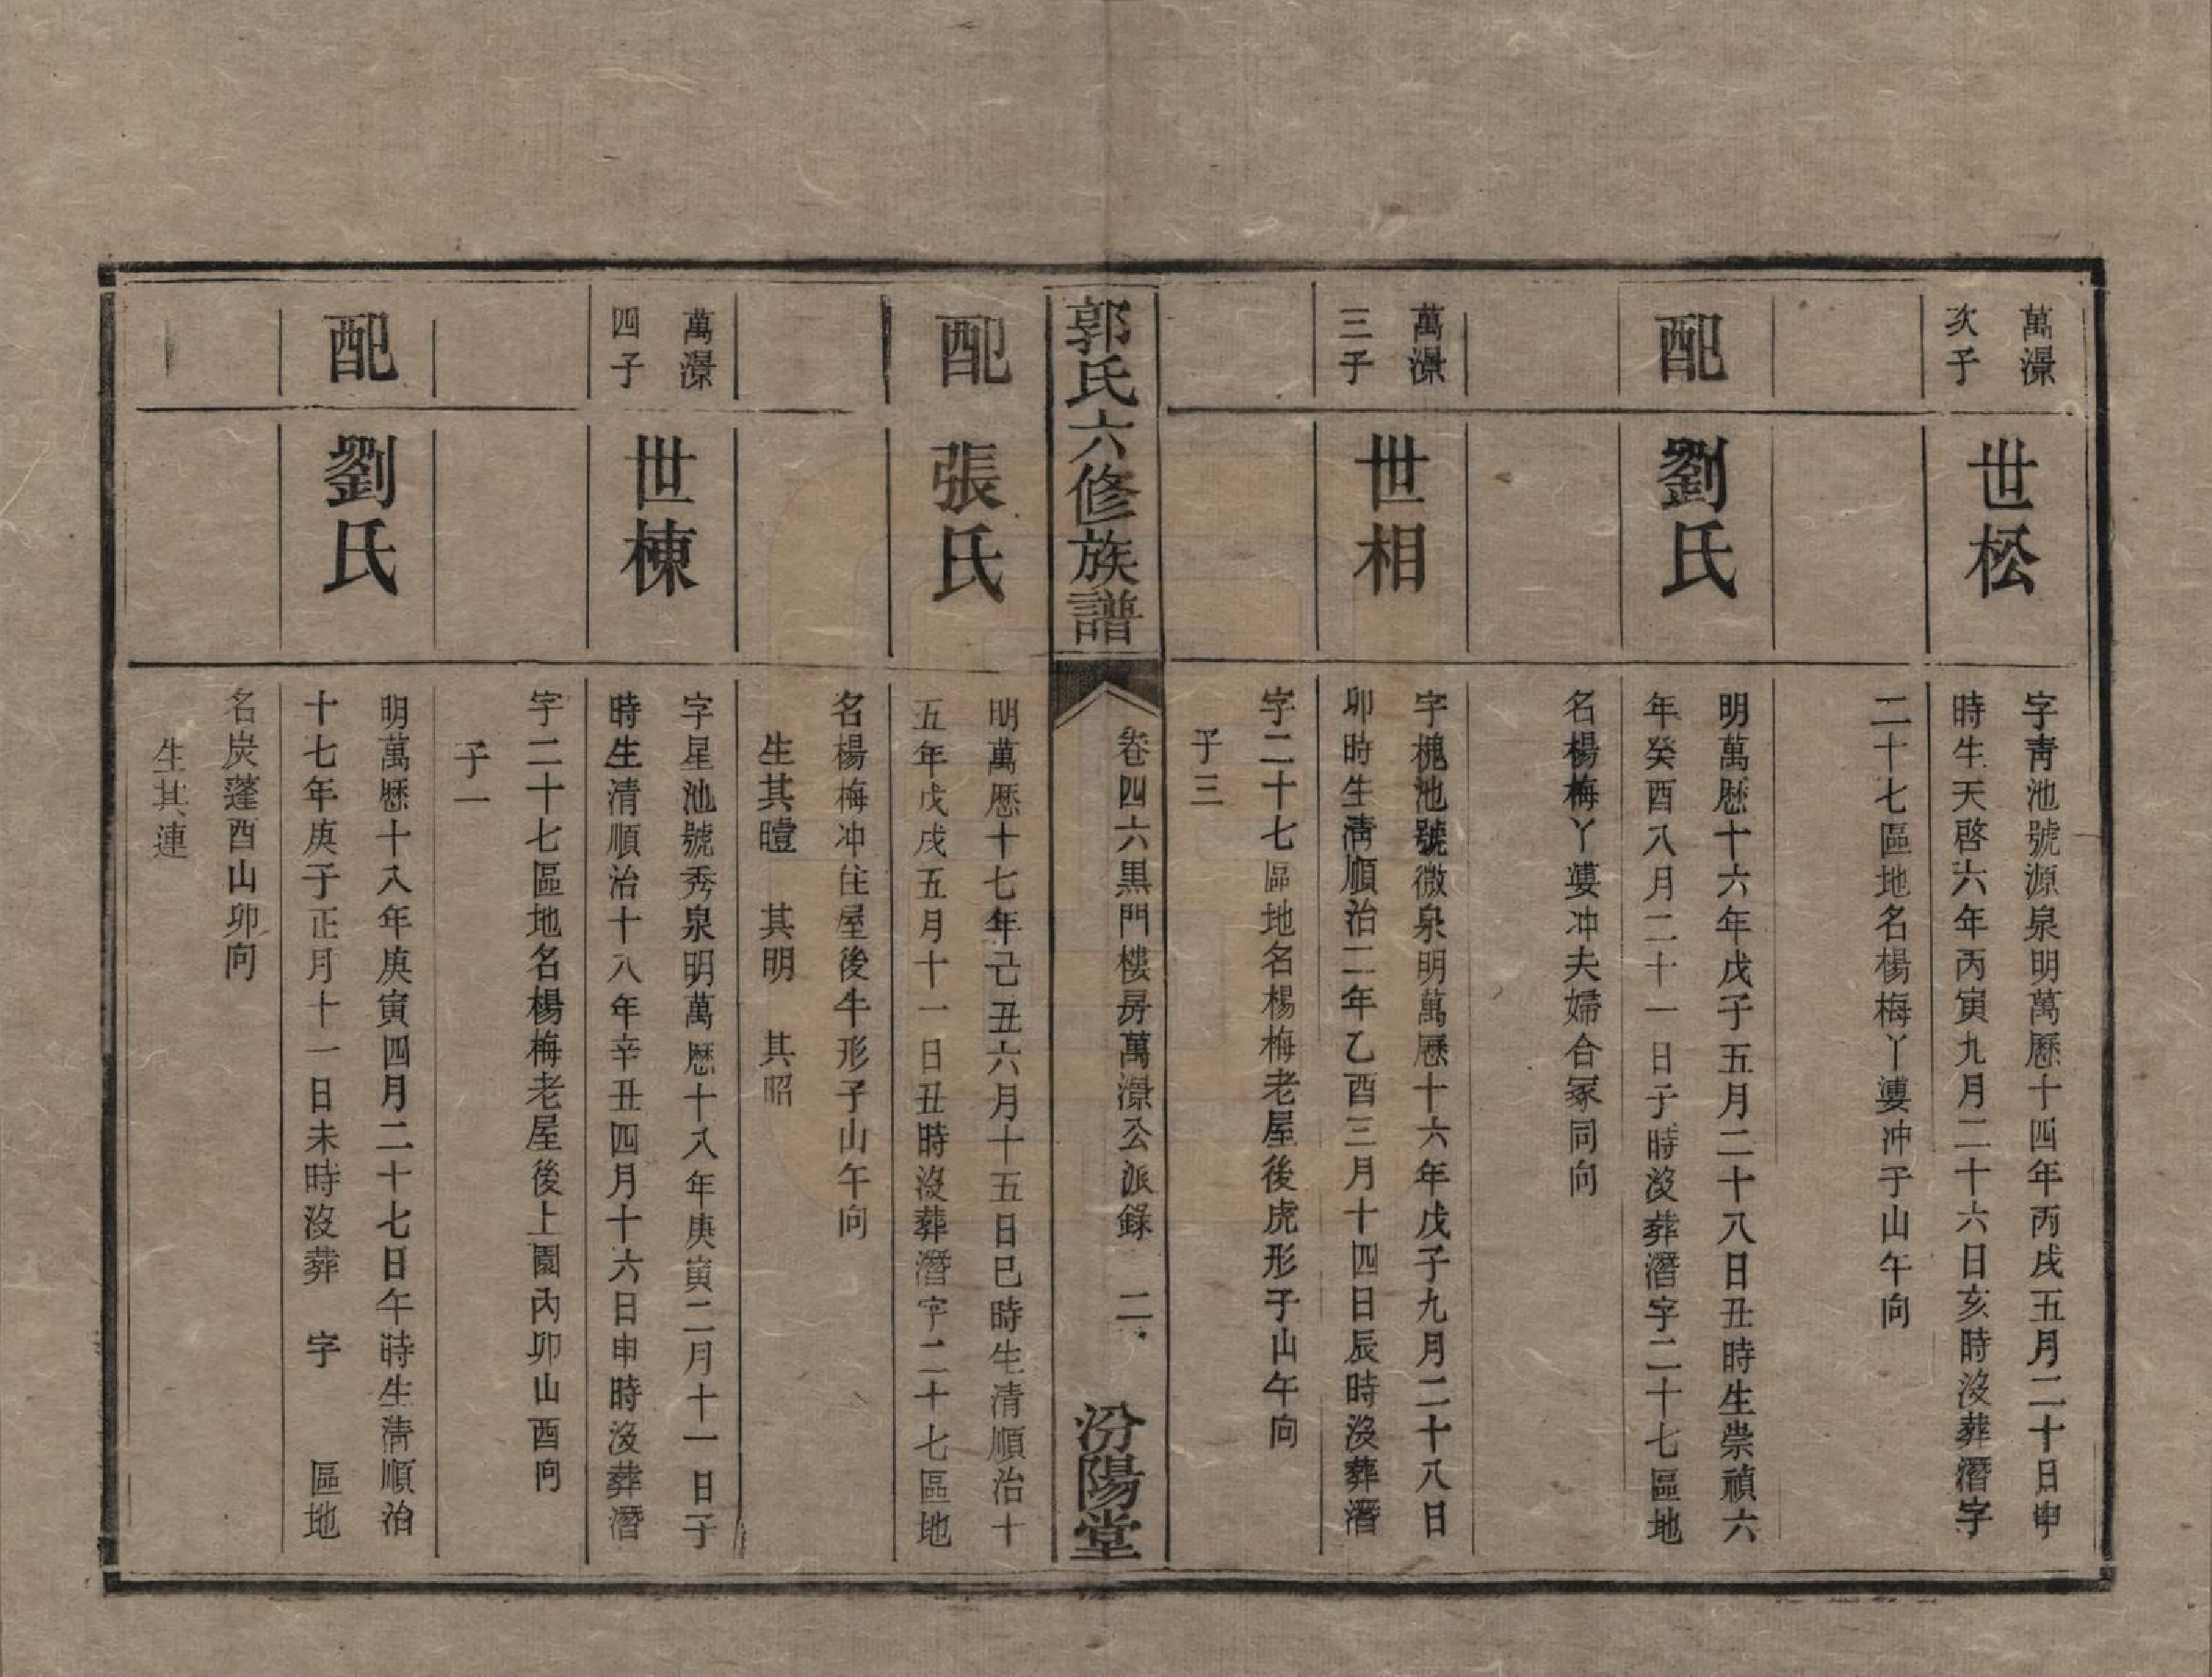 萬澋
次子
世松
字靑池號源泉明萬歷十四年丙戌五月二十日申
時生天啓六年丙寅九月二十六日亥時沒葬潛字
二十七區地名楊梅丫婁冲子山午向
配
劉氏
明萬歷十六年戊子五月二十八日丑時生崇禎六
年癸酉八月二十一日子時沒葬潛字二十七區地
名楊梅丫婁冲夫婦合冢同向
萬澋
三子
世相
字槐池號微泉明萬歷十六年戊子九月二十八日
卯時生淸順治二年乙酉三月十四日辰時沒葬潛
字二十七區地名楊梅老屋後虎形子山午向
子三
郭氏六修族譜
卷四六黑門樓房萬澋公派錄
二
汾陽堂
配
張氏
明萬歷十七年己丑六月十五日巳時生清順治十
五年戊戌五月十一日丑時沒葬潛字二十七區地
名楊梅冲住屋後牛形子山午向
生其曀 其明 其昭
萬澋
四子
世棟
字星池號秀泉明萬歷十八年庚寅二月十一日子
時生清順治十八年辛丑四月十六日申時沒葬潛
字二十七區地名楊梅老屋後上園內卯山酉向
子一
配
劉氏
明萬歷十八年庚寅四月二十七日午時生淸順治
十七年庚子正月十一日未時沒葬 字 區地
名炭蓬酉山卯向
生其連